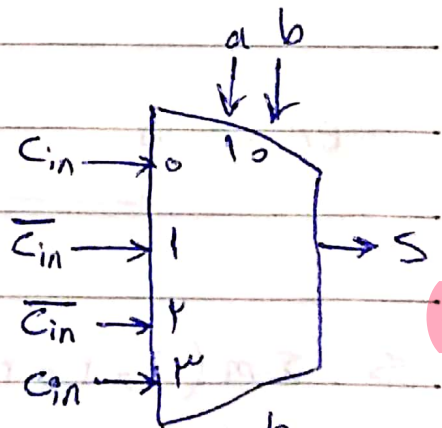 a b
1 0
Cin 0
C̅i̅n̅ ۱ S
C̅i̅n̅ ۲
Cin ۳